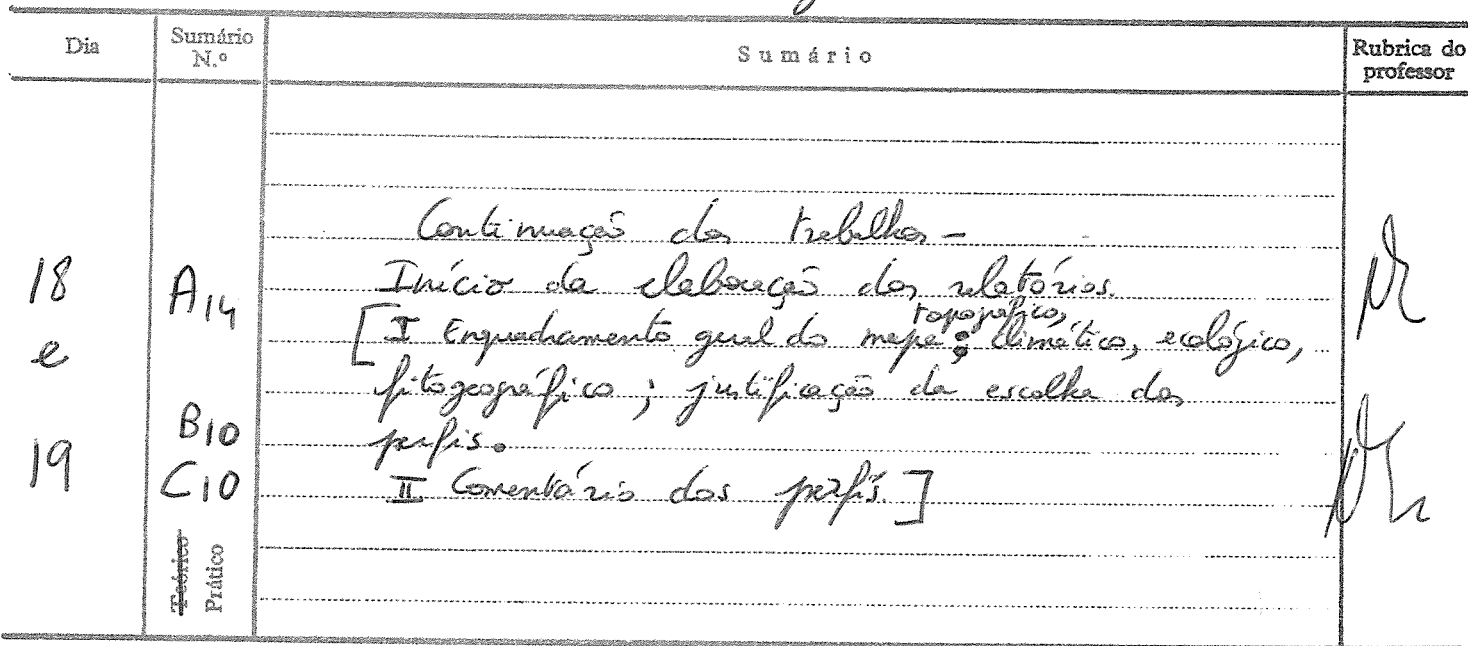 Dia
Sumário N.º
Sumário
Rubrica do professor
18
e
19
A14
B10
C10
Teórico
Prático
Continuação dos trabalhos -
Início da elaboração dos relatórios.
topográfico,
[I Enquadramento geral do mapa: climático, ecológico,
fitogeográfico; justificação da escolha dos
perfis.
II Comentário dos perfis.]